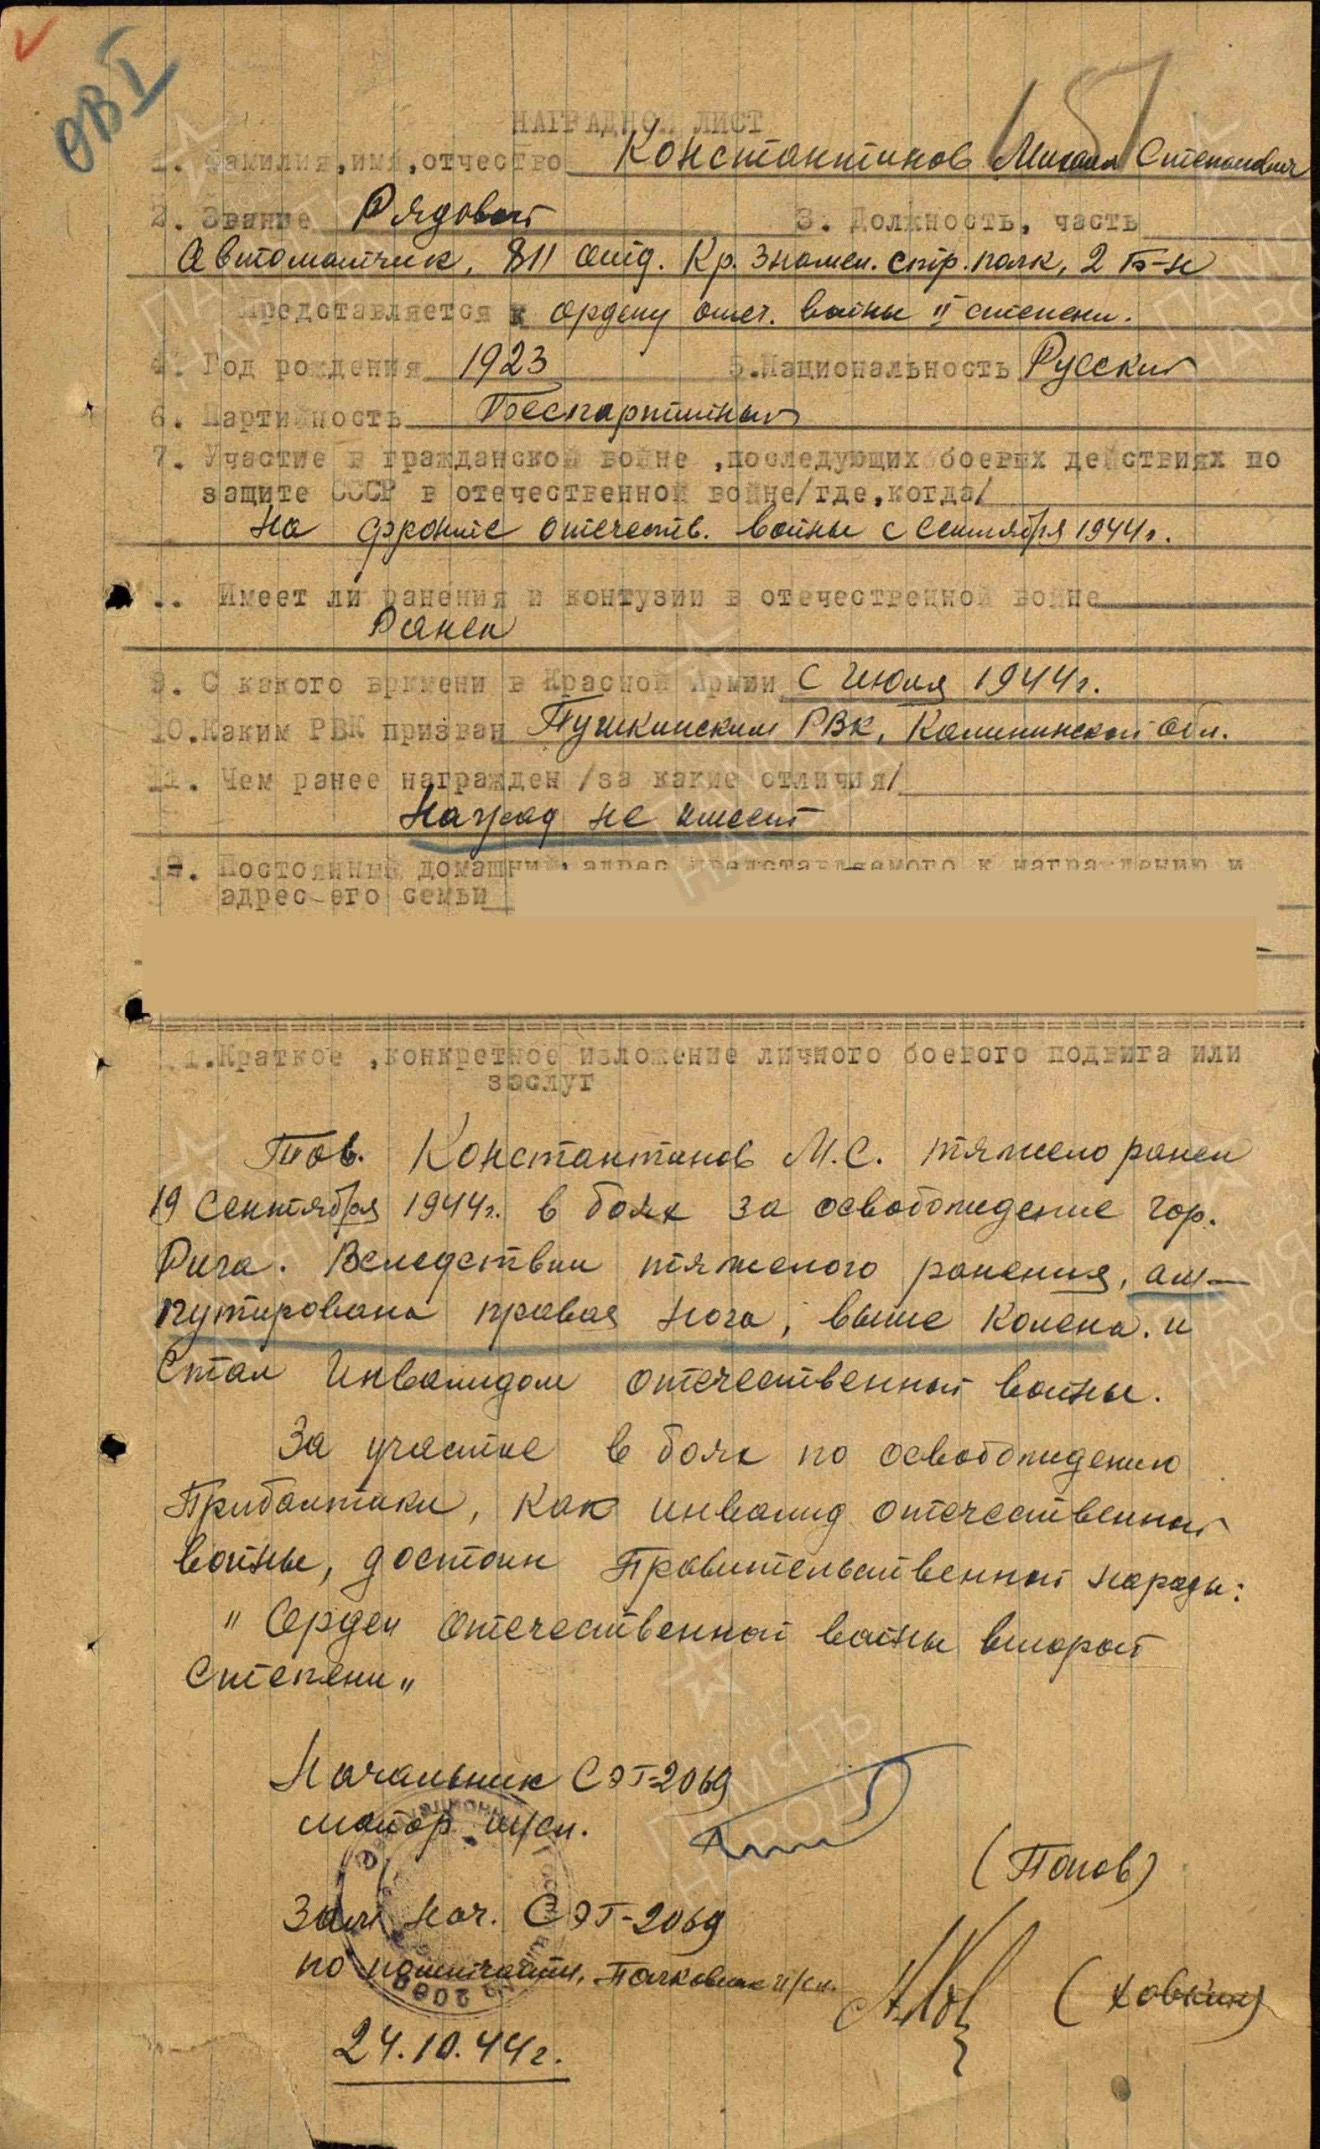 ОВ I
157
НАГРАДНОЙ ЛИСТ
1. Фамилия, имя, отчество Константинов Михаил Степанович
2. Звание Рядовой 3. Должность, часть
Автоматчик, 811 отд. Кр. Знамен. стр. полк, 2 Б-н
Представляется к ордену отеч. войны II степени.
4. Год рождения 1923 5. Национальность Русский
6. Партийность Беспартийный
7. Участие в гражданской войне ,последующих боевых действиях по
защите СССР в отечественной войне/где,когда/
На фронте отечеств. войны с Сентября 1944 г.
.. Имеет ли ранения и контузии в отечественной войне
Ранен
9. С какого времени в Красной Армии С Июля 1944 г.
10.Каким РВК призван Пушкинским РВК, Калининской обл.
11. Чем ранее награжден /за какие отличия/
Наград не имеет
12. Постоянный домашний адрес представляемого к награждению и
адрес его семьи
1.Краткое ,конкретное изложение личного боевого подвига или
заслуг
Тов. Константинов М.С. тяжело ранен
19 Сентября 1944 г. в боях за освобождение гор.
Рига. Вследствии тяжелого ранения, ам-
путирована правая нога, выше колена. и
Стал Инвалидом отечественной войны.
За участие в боях по освобождению
Прибалтики, как инвалид отечественной
войны, достоин Правительственной награды:
" Орден Отечественной войны второй
Степени "
Начальник СЭГ-2069
майор м/сл.
(Попов)
Зам. Нач. СЭГ-2069
по политчасти, Полковник
24.10.44 г.
ПАМЯТЬ НАРОДА